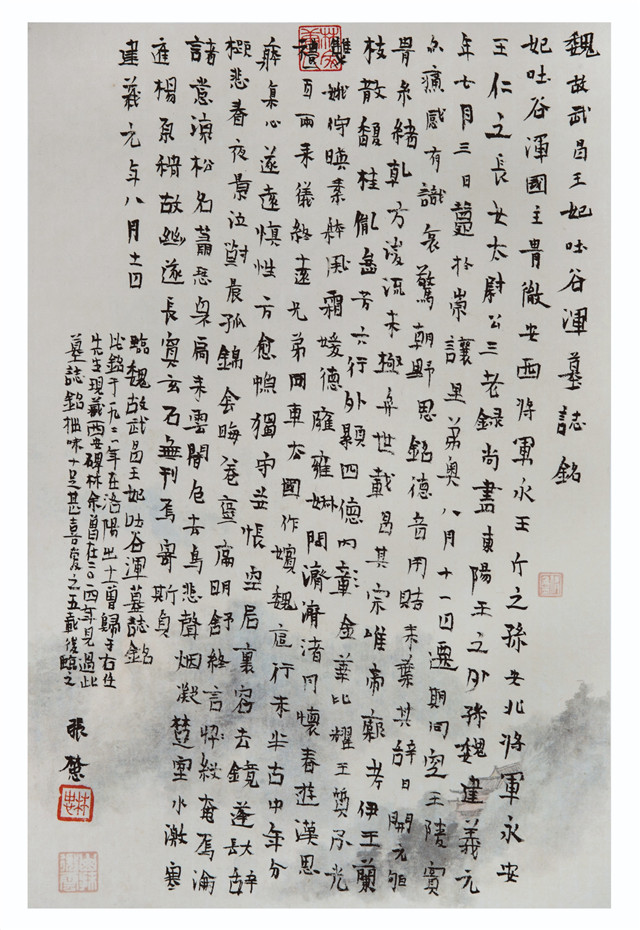 魏故武昌王妃吐谷渾墓誌銘
妃吐谷渾國主胄徽安西將軍永王斤之孫安北將軍永安
王仁之長女太尉公三老錄尚書東陽王之外孫魏建義元
年七月三日薨於崇讓里第奥八月十一日遷期同空王陵賓
亦痛感有識哀驚朝野思銘德音用貽来葉其辭曰開元
胄系緒軋方浚流未極弈世載昌其宗唯帝厥考伊王蘭
枝散馥桂胤留芳六行外顯四德內彰金華比耀王質齐光
雙娥佇暎素粹風霜媛德雍雍婌問濟濟渚月懷春遊漢思
禮百兩来儀終遠兄弟同車大國作嬪魏庭行未半古中年分
心遂遠慎性方愈惸獨守並悵空居裏容去鏡蓬辞
櫛悲春夜景泣對晨孤錦会晦卷壟痛明舒終言奄焉淪
諸意凉松名蕭瑟泉扃未雲闇色去鳥悲聲烟凝楚水激寒
庭楊原故幽遂長冥玄石無刊焉寄斯貞
建義元年八月十一日
臨魏故武昌王妃吐谷渾墓誌銘
此銘于一九二一年在洛陽出土曾歸于右任
先生現藏西安碑林余曾在二〇一四年見過此
墓誌銘拙味十足甚喜愛之五載後臨之
張